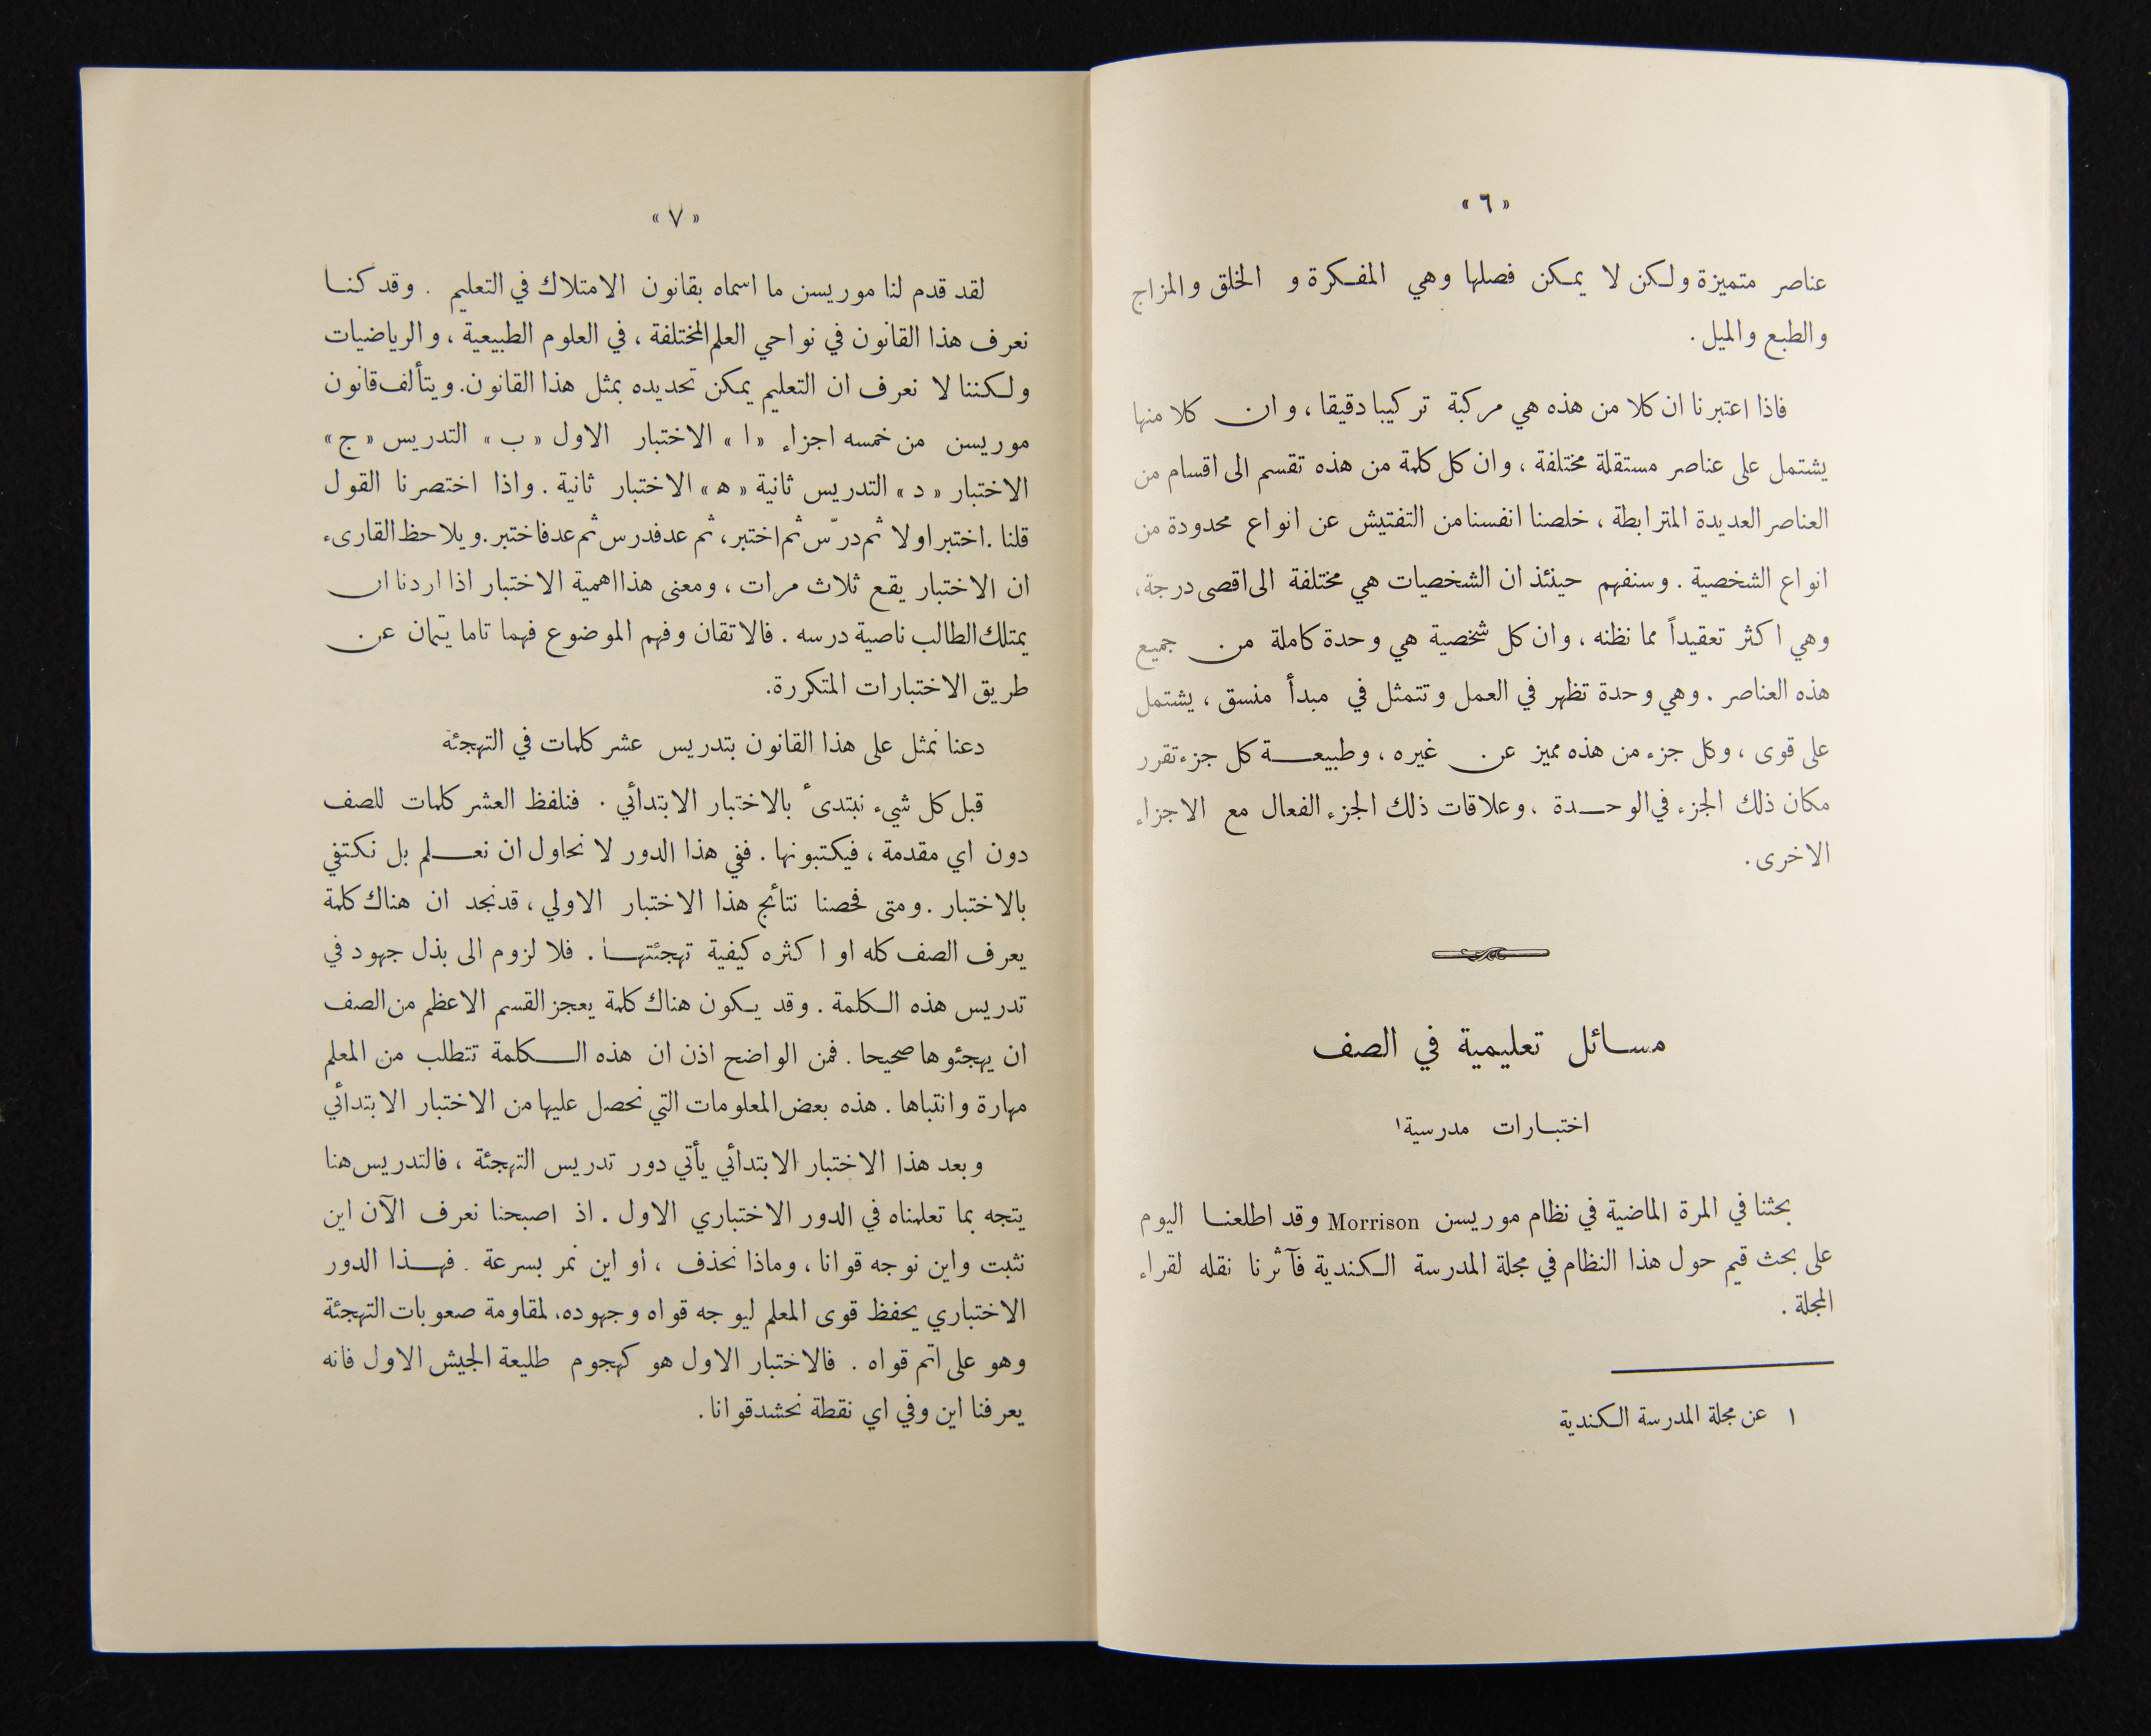 « ٦ »
عناصر متميزة ولكن لا يمكن فصلها وهي المفكرة و الخلق والمزاج
والطبع والميل .
فاذا اعتبرنا ان كلا من هذه هي مركبة تركيبا دقيقا ، وان كلا منها
يشتمل على عناصر مستقلة مختلفة ، وان كل كلمة من هذه تقسم الى اقسام من
العناصر العديدة المترابطة ، خلصنا انفسنا من التفتيش عن انواع محدودة من
انواع الشخصية . وسنفهم حينئذ ان الشخصيات هي مختلفة الى اقصى درجة ،
وهي اكثر تعقيداً مما نظنه ، وان كل شخصية هي وحدة كاملة من جميع
هذه العناصر . وهي وحدة تظهر في العمل وتتمثل في مبدأ منسق ، يشتمل
على قوى ، وكل جزء من هذه مميز عن غيره ، وطبيعة كل جزء تقرر
مكان ذلك الجزء في الوحدة ، وعلاقات ذلك الجزء الفعال مع الاجزاء
الاخرى .
مسائل تعليمية في الصف
اختبارات مدرسية١
بحثنا في المرة الماضية في نظام موريسن Morrison وقد اطلعنا اليوم
على بحث قيم حول هذا النظام في مجلة المدرسة الكندية فآثرنا نقله لقراء
المجلة .
١ عن مجلة المدرسة الكندية
« ٧ »
لقد قدم لنا موريسن ما اسماه بقانون الامتلاك في التعليم . وقد كنا
نعرف هذا القانون في نواحي العلم المختلفة ، في العلوم الطبيعية ، والرياضيات
ولكننا لا نعرف ان التعليم يمكن تحديده بمثل هذا القانون . ويتألف قانون
موريسن من خمسه اجزاء « ا » الاختبار الاول « ب » التدريس « ج »
الاختبار « د » التدريس ثانية « ه » الاختبار ثانية . واذا اختصرنا القول
قلنا . اختبر اولا ثم درّس ثم اختبر ، ثم عد فدرس ثم عد فاختبر . ويلاحظ القارىء
ان الاختبار يقع ثلاث مرات ، ومعنى هذا اهمية الاختبار اذا اردنا ان
يمتلك الطالب ناصية درسه . فالاتقان وفهم الموضوع فهما تاما يتمان عن
طريق الاختبارات المتكررة .
دعنا نمثل على هذا القانون بتدريس عشر كلمات في التهجئة
قبل كل شيء نبتدىء بالاختبار الابتدائي . فنلفظ العشر كلمات للصف
دون اي مقدمة ، فيكتبونها . ففي هذا الدور لا نحاول ان نعلم بل نكتفي
بالاختبار . ومتى فحصنا نتائج هذا الاختبار الاولي ، قد نجد ان هناك كلمة
يعرف الصف كله او اكثره كيفية تهجئتها . فلا لزوم الى بذل جهود في
تدريس هذه الكلمة . وقد يكون هناك كلمة يعجز القسم الاعظم من الصف
ان يهجئوها صحيحا . فمن الواضح اذن ان هذه الكلمة تتطلب من المعلم
مهارة وانتباها . هذه بعض المعلومات التي نحصل عليها من الاختبار الابتدائي
وبعد هذا الاختبار الابتدائي يأتي دور تدريس التهجئة ، فالتدريس هنا
يتجه بما تعلمناه في الدور الاختباري الاول . اذ اصبحنا نعرف الآن اين
نثبت واين نوجه قوانا ، وماذا نحذف ، او اين نمر بسرعة . فهذا الدور
الاختباري يحفظ قوى المعلم ليوجه قواه وجهوده ، لمقاومة صعوبات التهجئة
وهو على اتم قواه . فالاختبار الاول هو كهجوم طليعة الجيش الاول فانه
يعرفنا اين وفي اي نقطة نحشد قوانا .